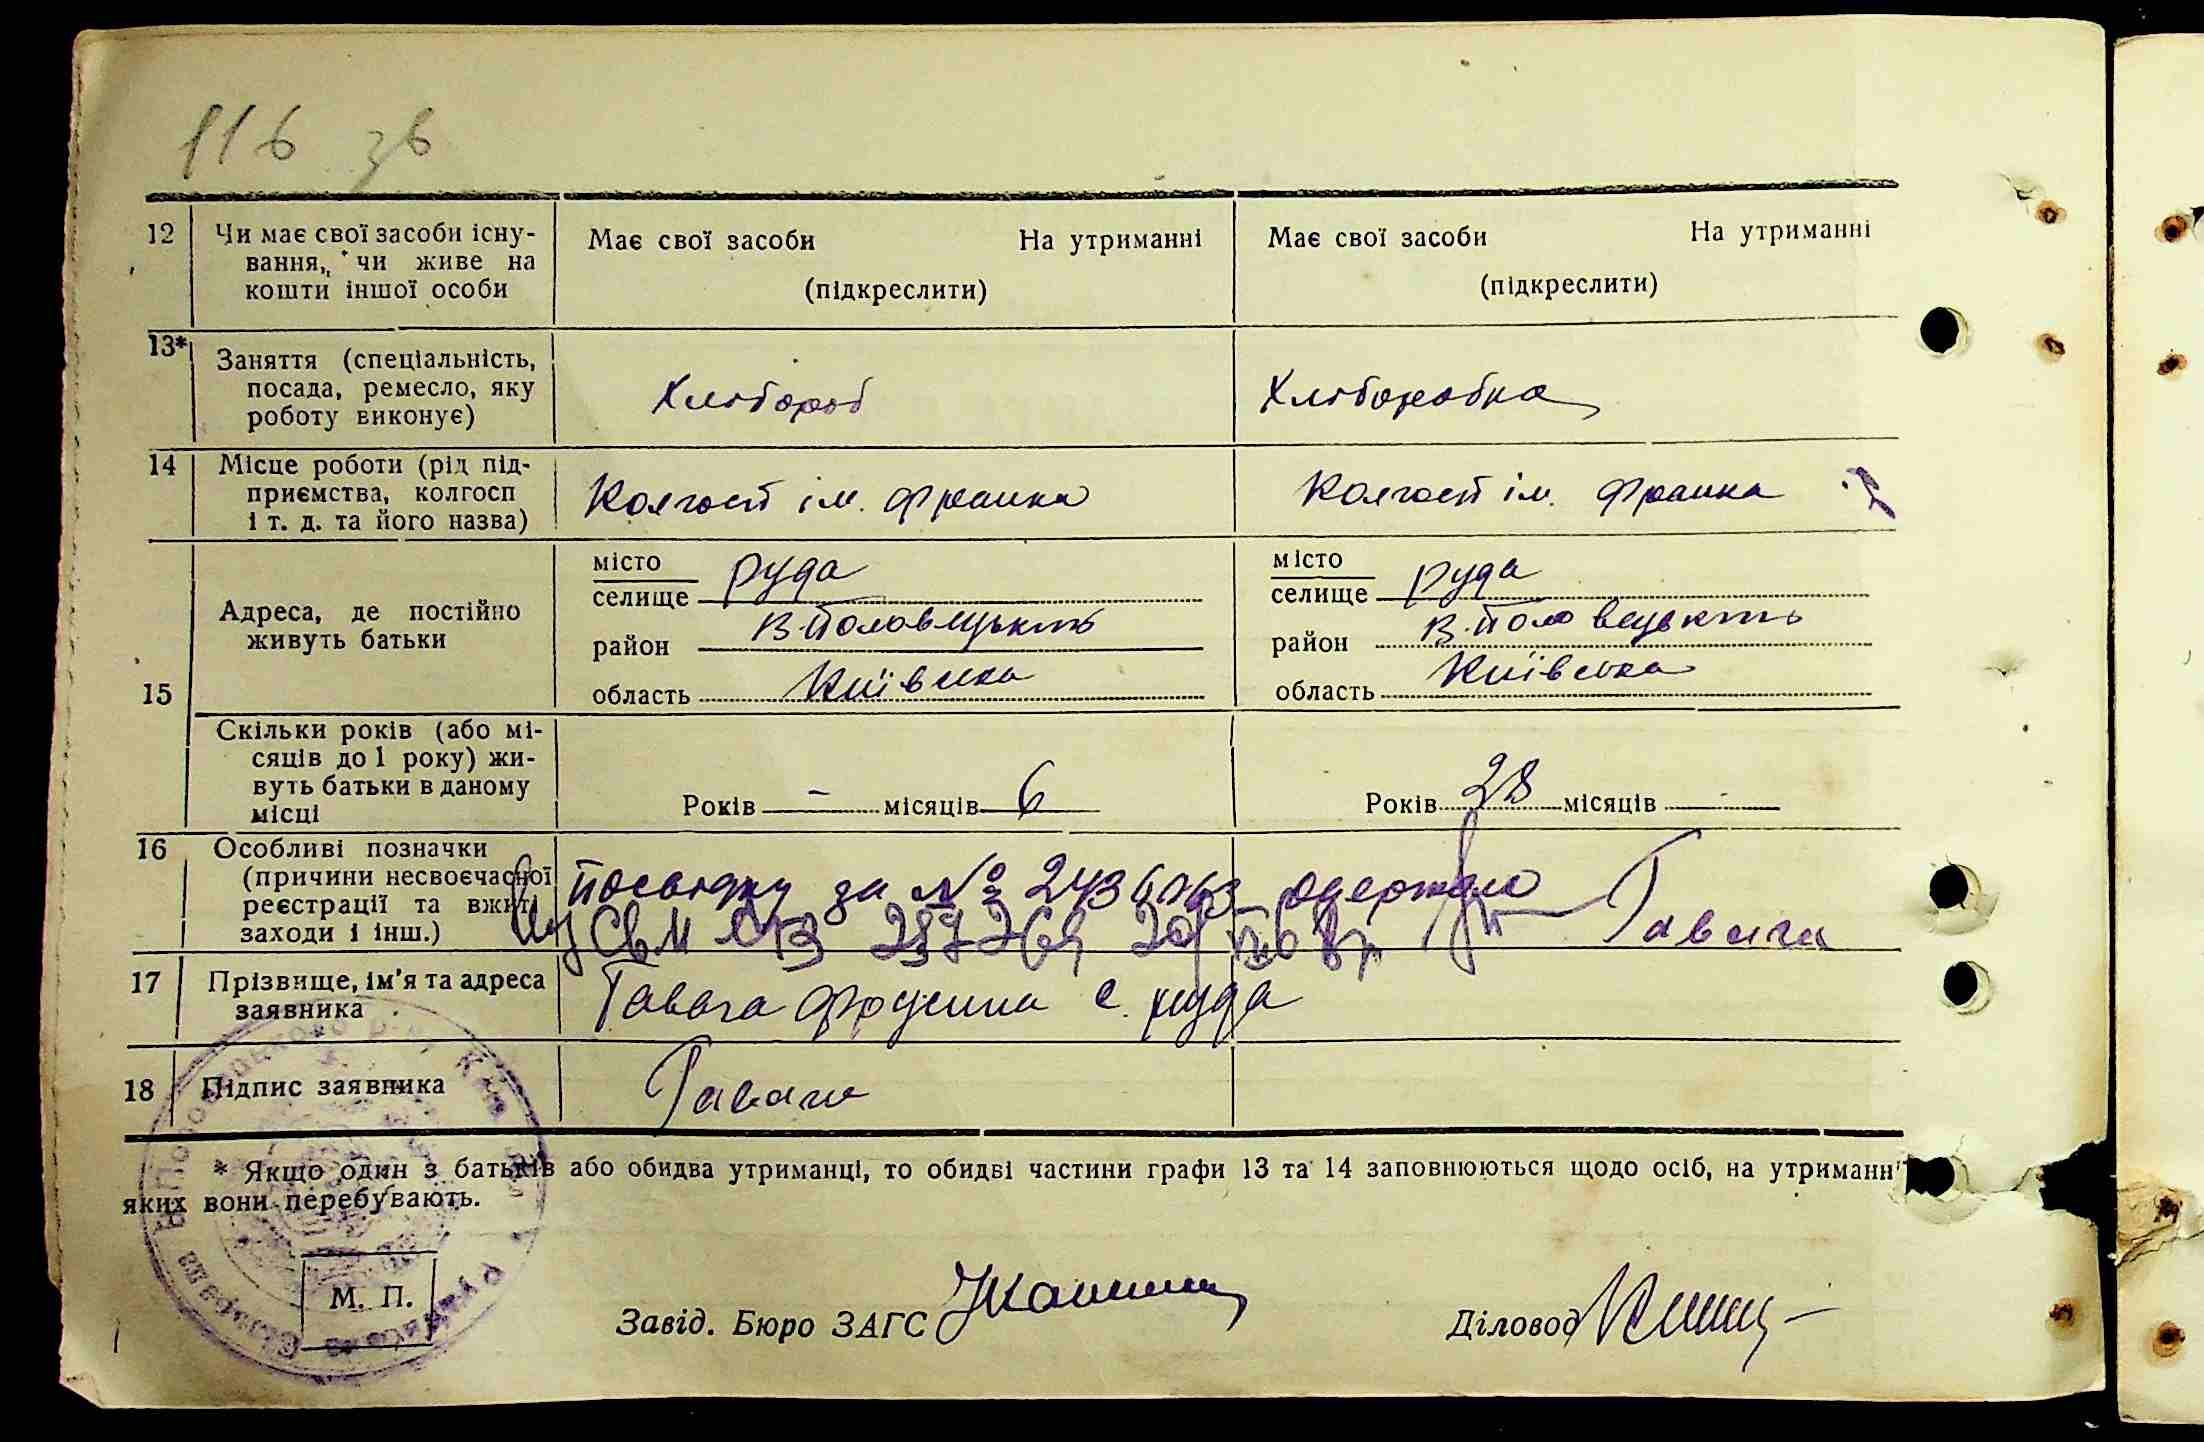 116 зв
12 Чи має свої засоби існу- Має свої засоби На утриманні Має свої засоби На утриманні
вання, чи живе на
кошти іншої особи (підкреслити) (підкреслити)
13* Заняття (спеціальність,
посада, ремесло, яку Хлібороб Хлібороб­ка
роботу виконує)
14 Місце роботи (рід під-
приємства, колгосп Колгосп ім. Франка Колгосп ім. Франка
і т. д. та його назва)
15 Адреса, де постійно
живуть батьки
місто
селище Руда
район В-Половецькть
область Київська
місто
селище Руда
район В.Половецькть
область Київська
Скільки років (або мі-
сяців до 1 року) жи-
вуть батьки в даному
місці
Років - місяців 6 Років 28 місяців -
16 Особливі позначки
(причини несвоєчасної
реєстрації та вжиті
заходи і інш.)
посвідку за № одержала Гавага
17 Прізвище, ім'я та адреса
заявника
Гавага Фросина с. Руда
18 Підпис заявника Гавага
* Якщо один з батьків або обидва утриманці, то обидві частини графи 13 та 14 заповнюються щодо осіб, на утриманні
яких вони перебувають.
М. П.
Завід. Бюро ЗАГС Діловод